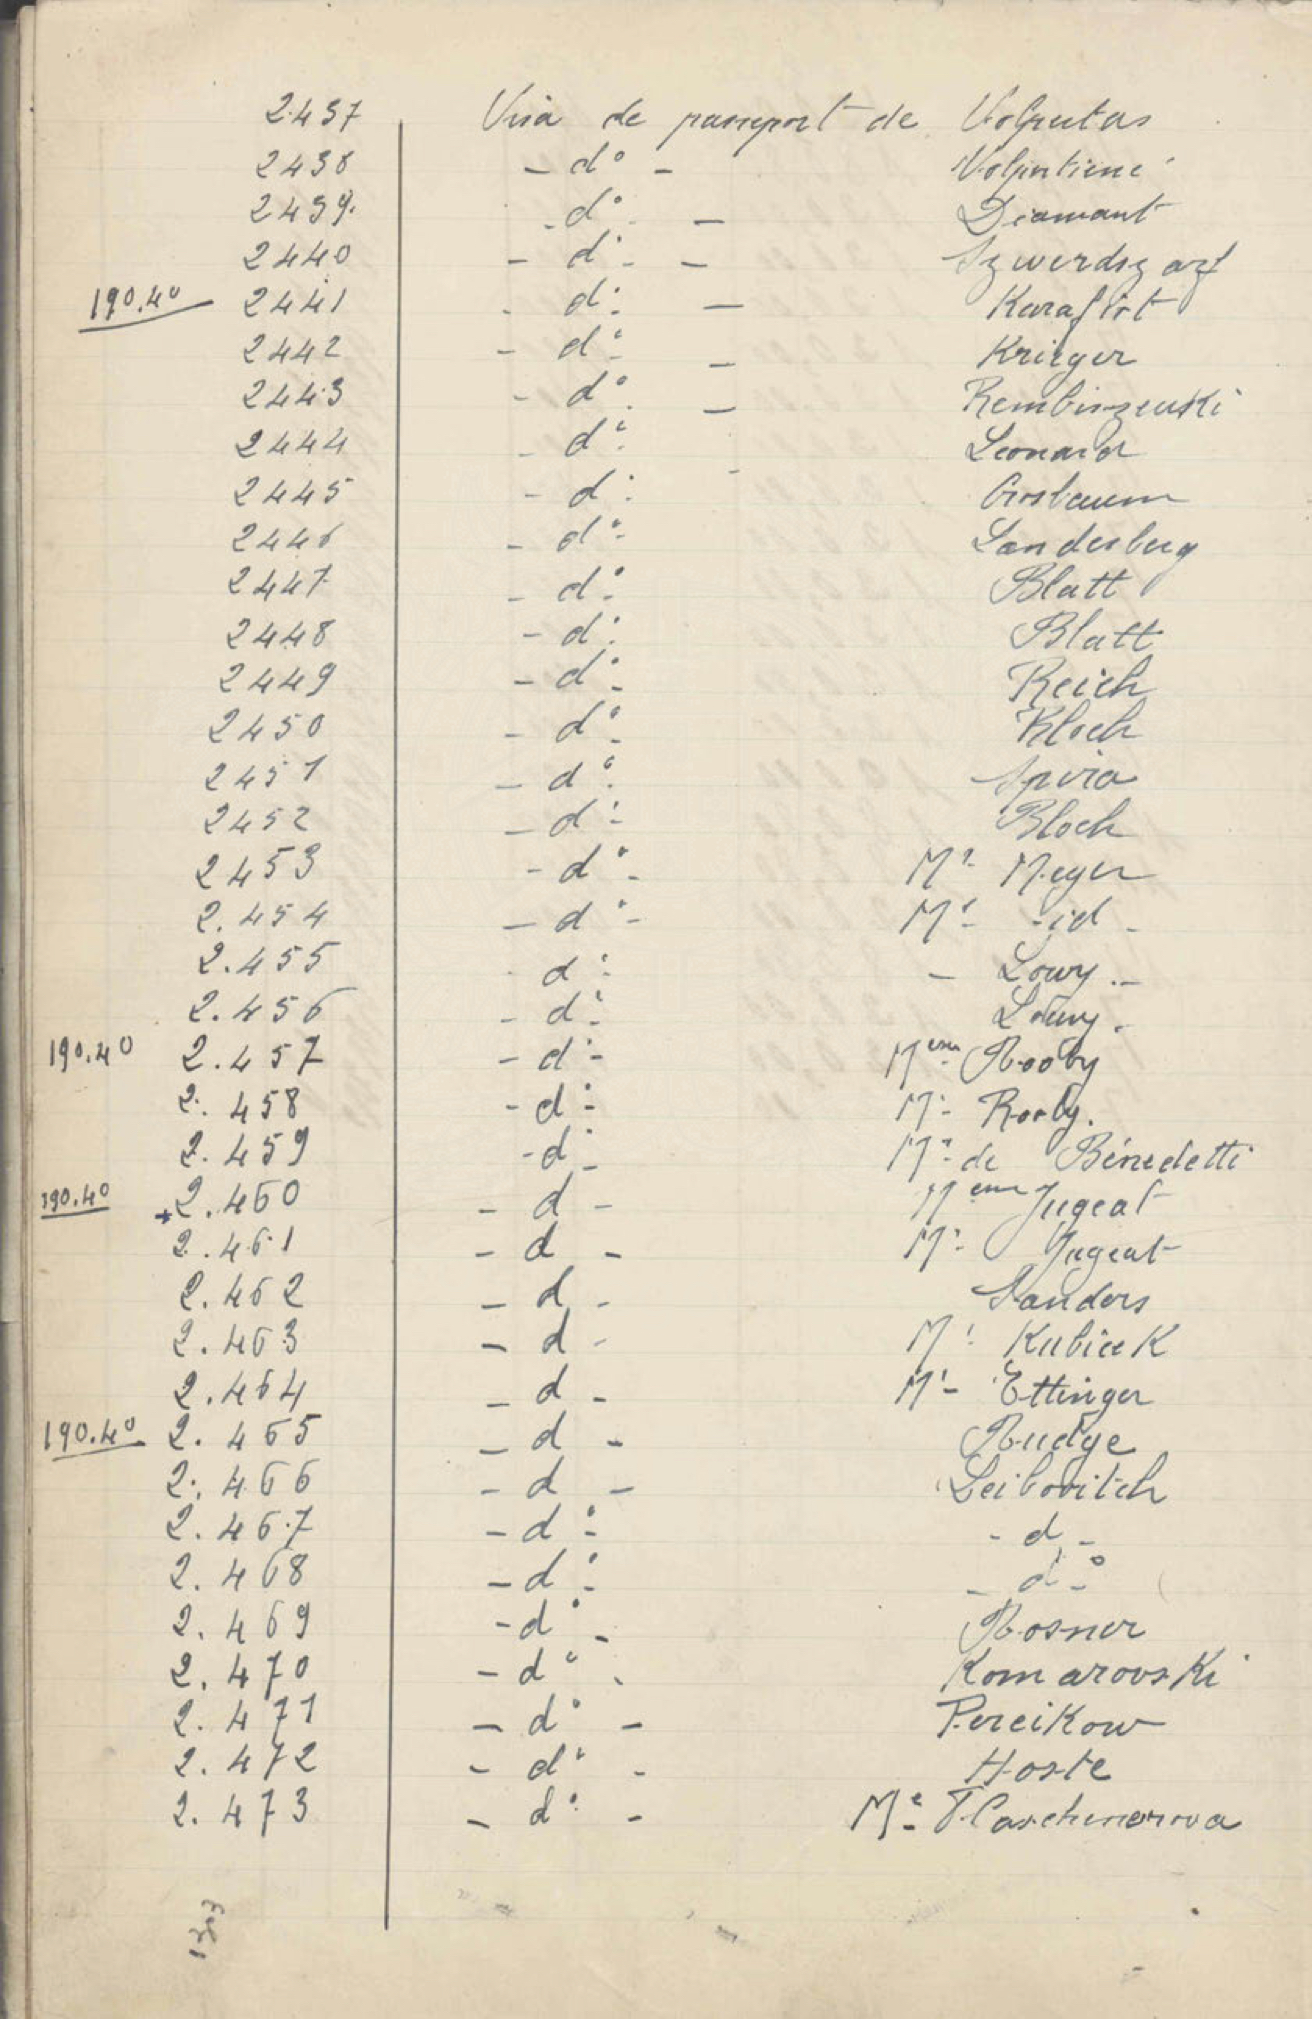 2437 Visa de passeport de Volputas
2438 - d° - Volpintiené
2439. - d° - - Diamant
2440 - d° - - Szwerdszarf
190.40 2441 - d° - Karafiot
2442 - d° - Krieger
2443 - d° - Rembiszewski
2444 - d° - Leonard
2445 - d° Grosbaum
2446 - d° - Landesberg
2447 - d° - Blatt
2448 - d° Blatt
2449 - d° - Reich
2450 - d° - Bloch
2451 - d° Spira
2452 - d° - Bloch
2453 - d° - Mr Meyer
2.454 - d° - Me - id -
2.455 - d° - Lowy -
2.456 - d° - Lowy.
190.40 2.457 - d° - Mme Rooby
2.458 - d° - Mr Rooby.
2.459 - d° - Mr de Bénedetti
190.40 2.460 - d - Mme Jugeat
2.461 - d - Mr Jugeat
2.462 - d - Sanders
2.463 - d - Mr Kubicek
2.464 - d - Mr Ettinger
190.40 2.465 - d - Rudge
2.466 - d - Leibovitch
2.467 - d° - - d -
2.468 - d° - - d° -
2.469 - d° - Rosner
2.470 - d° Komarovski
2.471 - d° - Pereikow
2.472 - d° - Hoste
2.473 - d° - Me
1303